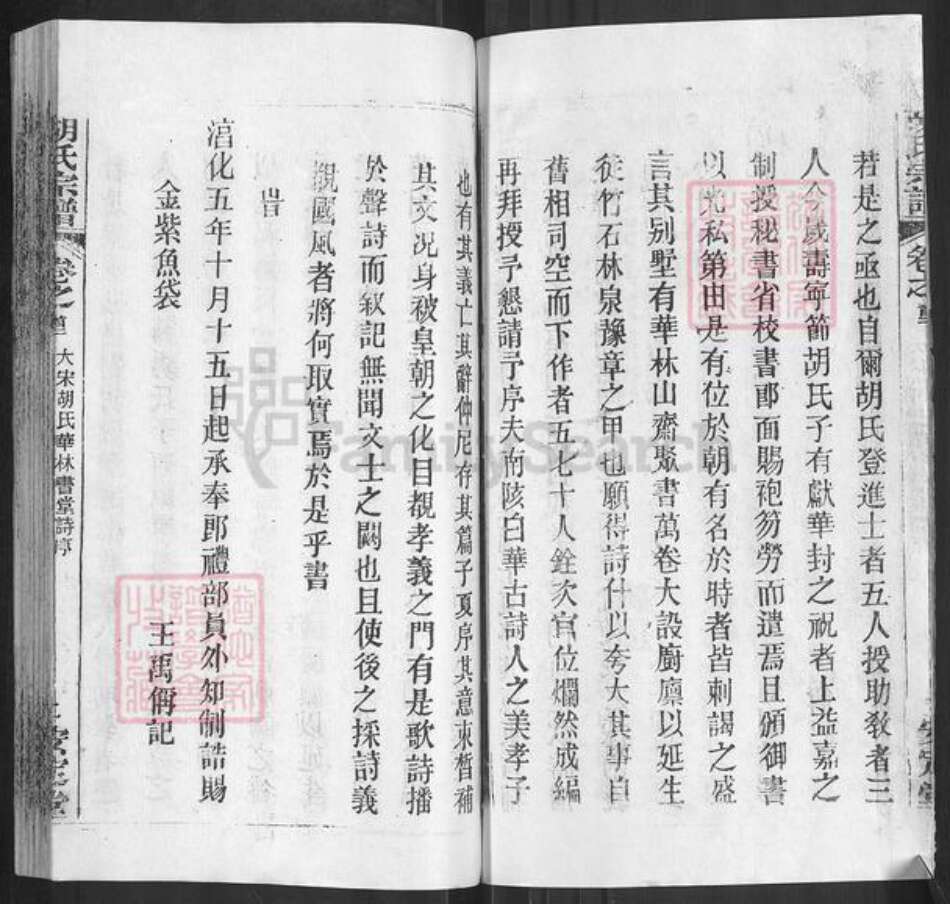 若是之亟也自爾胡氏登進士者五人授助教者三
人今歲壽寧節胡氏子有獻華封之祝者上益嘉之
制授秘書省校書郎面賜袍笏勞而遣焉且頒御書
以光私第由是有位於朝有名於時者皆刺謁之盛
言其别墅有華林山齋聚書萬卷大設廚廩以延生
徒竹石林泉豫章之甲也願得詩什以夸大其事自
舊相司空而下作者五七十人銓次官位爛然成編
再拜授予懇請予序夫南陔白華古詩人之美孝子
也有其義亡其辭仲尼存其篇子夏序其意束皙補
其文况身被皇朝之化目覩孝義之門有是歌詩播
於聲詩而敘記無聞文士之闕也且使後之採詩義
觀國風者將何取實焉於是乎書
旹
淳化五年十月十五日起承奉郎禮部員外知制誥賜
金紫魚袋
王禹偁記
胡氏宗譜
卷之一
大宋胡氏華林書堂詩序
安定堂
FamilySearch